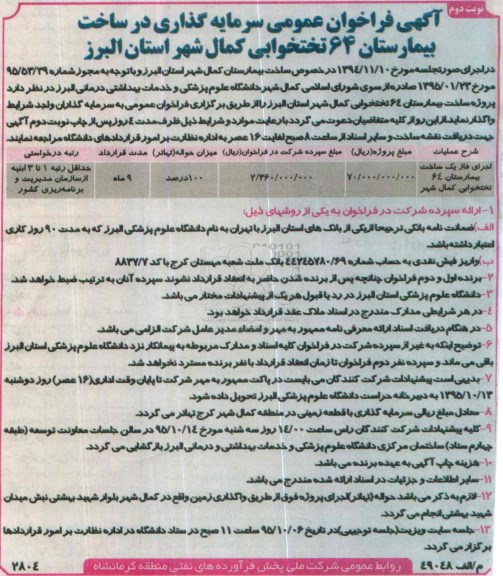 نوبت دوم
آگهی فراخوان عمومی سرمایه گذاری در ساخت
بیمارستان ۶۴ تختخوابی کمال شهر استان البرز
در اجرای صورتجلسه مورخ ۱۳۹۴/۱۱/۱۰ در خصوص ساخت بیمارستان کمال شهر استان البرز و با توجه به مجوز شماره ۹۵/۵۳/۳۹
مورخ ۱۳۹۵/۰۱/۲۳ صادره از سوی شورای اسلامی کمال شهر دانشگاه علوم پزشکی و خدمات بهداشتی درمانی البرز در نظر دارد
پروژه ساخت بیمارستان ۶۴ تختخوابی کمال شهر استان البرز را از طریق برگزاری فراخوان عمومی به سرمایه گذاران واجد شرایط
واگذار نماید از این رو از کلیه متقاضیان دعوت می گردد با رعایت موارد و شرایط ذیل ظرف مدت ۴ روز پس از چاپ نوبت دوم آگهی
جهت دریافت نقشه ساخت و سایر اسناد از ساعت ۸ صبح لغایت ۱۶ عصر به اداره نظارت بر امور قراردادهای دانشگاه مراجعه نمایند.
شرح عملیات مبلغ پروژه(ریال) مبلغ سپرده شرکت در فراخوان(ریال) میزان حواله(تهاتر) مدت قرارداد رتبه درخواستی
اجرای فاز یک ساخت بیمارستان ۶۴ تختخوابی کمال شهر ۷۰/۰۰۰/۰۰۰/۰۰۰ ۲/۳۶۰/۰۰۰/۰۰۰ ۱۰۰درصد ۹ ماه حداقل رتبه ۱ تا ۳ ابنیه ازسازمان مدیریت و برنامه‌ریزی کشور
۱- ارائه سپرده شرکت در فراخوان به یکی از روشهای ذیل:
الف)ضمانت نامه بانکی ترجیحا ازیکی از بانک های استان البرز یا تهران به نام دانشگاه علوم پزشکی البرز که به مدت ۹۰ روز کاری
اعتبار داشته باشد.
ب)واریز فیش نقدی به حساب شماره ۴۴۷۴۵۷۸۰/۶۹ بانک ملت شعبه میهستان کرج با کد ۸۸۳۷/۷
۲- برنده اول و دوم فراخوان چنانچه پس از برنده شدن حاضر به انعقاد قرارداد نشوند سپرده آنان به ترتیب ضبط خواهد شد.
۳- دانشگاه علوم پزشکی استان البرز در رد یا قبول هر یک از پیشنهادات مختار می باشد.
۴- در هر شرایطی مدارک مندرج در اسناد ملاک عقد قرارداد خواهد بود.
۵- در هنگام دریافت اسناد ارائه معرفی نامه ممهور به مهر و امضاء مدیر عامل شرکت الزامی می باشد.
۶- توضیح اینکه به غیر از سپرده شرکت در فراخوان کلیه اسناد و مدارک مربوطه به پیمانکار نزد دانشگاه علوم پزشکی استان البرز
باقی می ماند و سپرده نفر دوم فراخوان تا زمان انعقاد قرارداد با نفر برنده مسترد نخواهد شد.
۷- بدیهی است پیشنهادات شرکت کنندگان می بایست در پاکت ممهور به مهر شرکت تا پایان وقت اداری(۱۶ عصر) روز دوشنبه
۱۳۹۵/۱۰/۱۳ به دبیرخانه حراست دانشگاه علوم پزشکی البرز تحویل داده شود.
۸- معادل مبلغ ریالی سرمایه گذاری با قطعه زمینی در منطقه کمال شهر کرج تهاتر می گردد.
۹- کلیه پیشنهادات شرکت کنندگان راس ساعت ۱۴/۰۰ روز سه شنبه مورخ ۹۵/۱۰/۱۴ در سالن جلسات معاونت توسعه (طبقه
چهارم ستاد) ساختمان مرکزی دانشگاه علوم پزشکی و خدمات بهداشتی و درمانی البرز بازگشایی می گردد.
۱۰- هزینه چاپ آگهی به عهده برنده می باشد.
۱۱- سایر اطلاعات و جزئیات در اسناد ارائه شده مندرج می باشد.
۱۲- لازم به ذکر می باشد حواله (تهاتر)اجرای پروژه فوق از طریق واگذاری زمین واقع در کمال شهر بلوار شهید بهشتی نبش میدان
شهید بهشتی انجام می گردد.
۱۳- جلسه سایت ویزیت(جلسه توجیهی)در تاریخ ۹۵/۱۰/۰۶ ساعت ۱۱ صبح در ستاد دانشگاه در اداره نظارت بر امور قراردادها
برگزار می گردد.
م/الف ۴۹۰۴۸ روابط عمومی شرکت ملی پخش فرآورده های نفتی منطقه کرمانشاه ۲۸۰۴